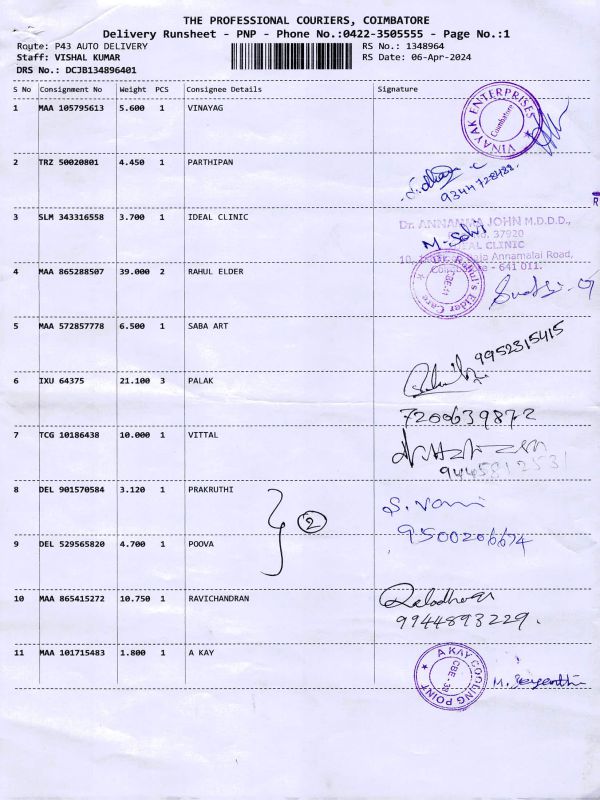 THE PROFESSIONAL COURIERS, COIMBATORE
Delivery Runsheet - PNP - Phone No.:0422-3505555 - Page No.:1
Route: P43 AUTO DELIVERY RS No.: 1348964
Staff: VISHAL KUMAR RS Date: 06-Apr-2024
DRS No.: DCJB134896401
S No Consignment No Weight PCS Consignee Details Signature
1 MAA 105795613 5.600 1 VINAYAG
VINAYAK ENTERPRISES
Coimbatore
2 TRZ 50020801 4.450 1 PARTHIPAN
3 SLM 343316558 3.700 1 IDEAL CLINIC
Dr. ANNAMMA JOHN M.D.D.D.,
37920
IDEAL CLINIC
Annamalai Road,
Coimbatore - 641 011.
4 MAA 865288507 39.000 2 RAHUL ELDER
Dr. Rahul's Elder Care
CBE-11
5 MAA 572857778 6.500 1 SABA ART
9952315415
6 IXU 64375 21.100 3 PALAK
7200639872
7 TCG 10186438 10.000 1 VITTAL
9445812531
8 DEL 901570584 3.120 1 PRAKRUTHI
S. Vani
2
9500206674
9 DEL 529565820 4.700 1 POOVA
10 MAA 865415272 10.750 1 RAVICHANDRAN
9944893229.
11 MAA 101715483 1.800 1 A KAY
A KAY COOLING POINT
CBE - 38